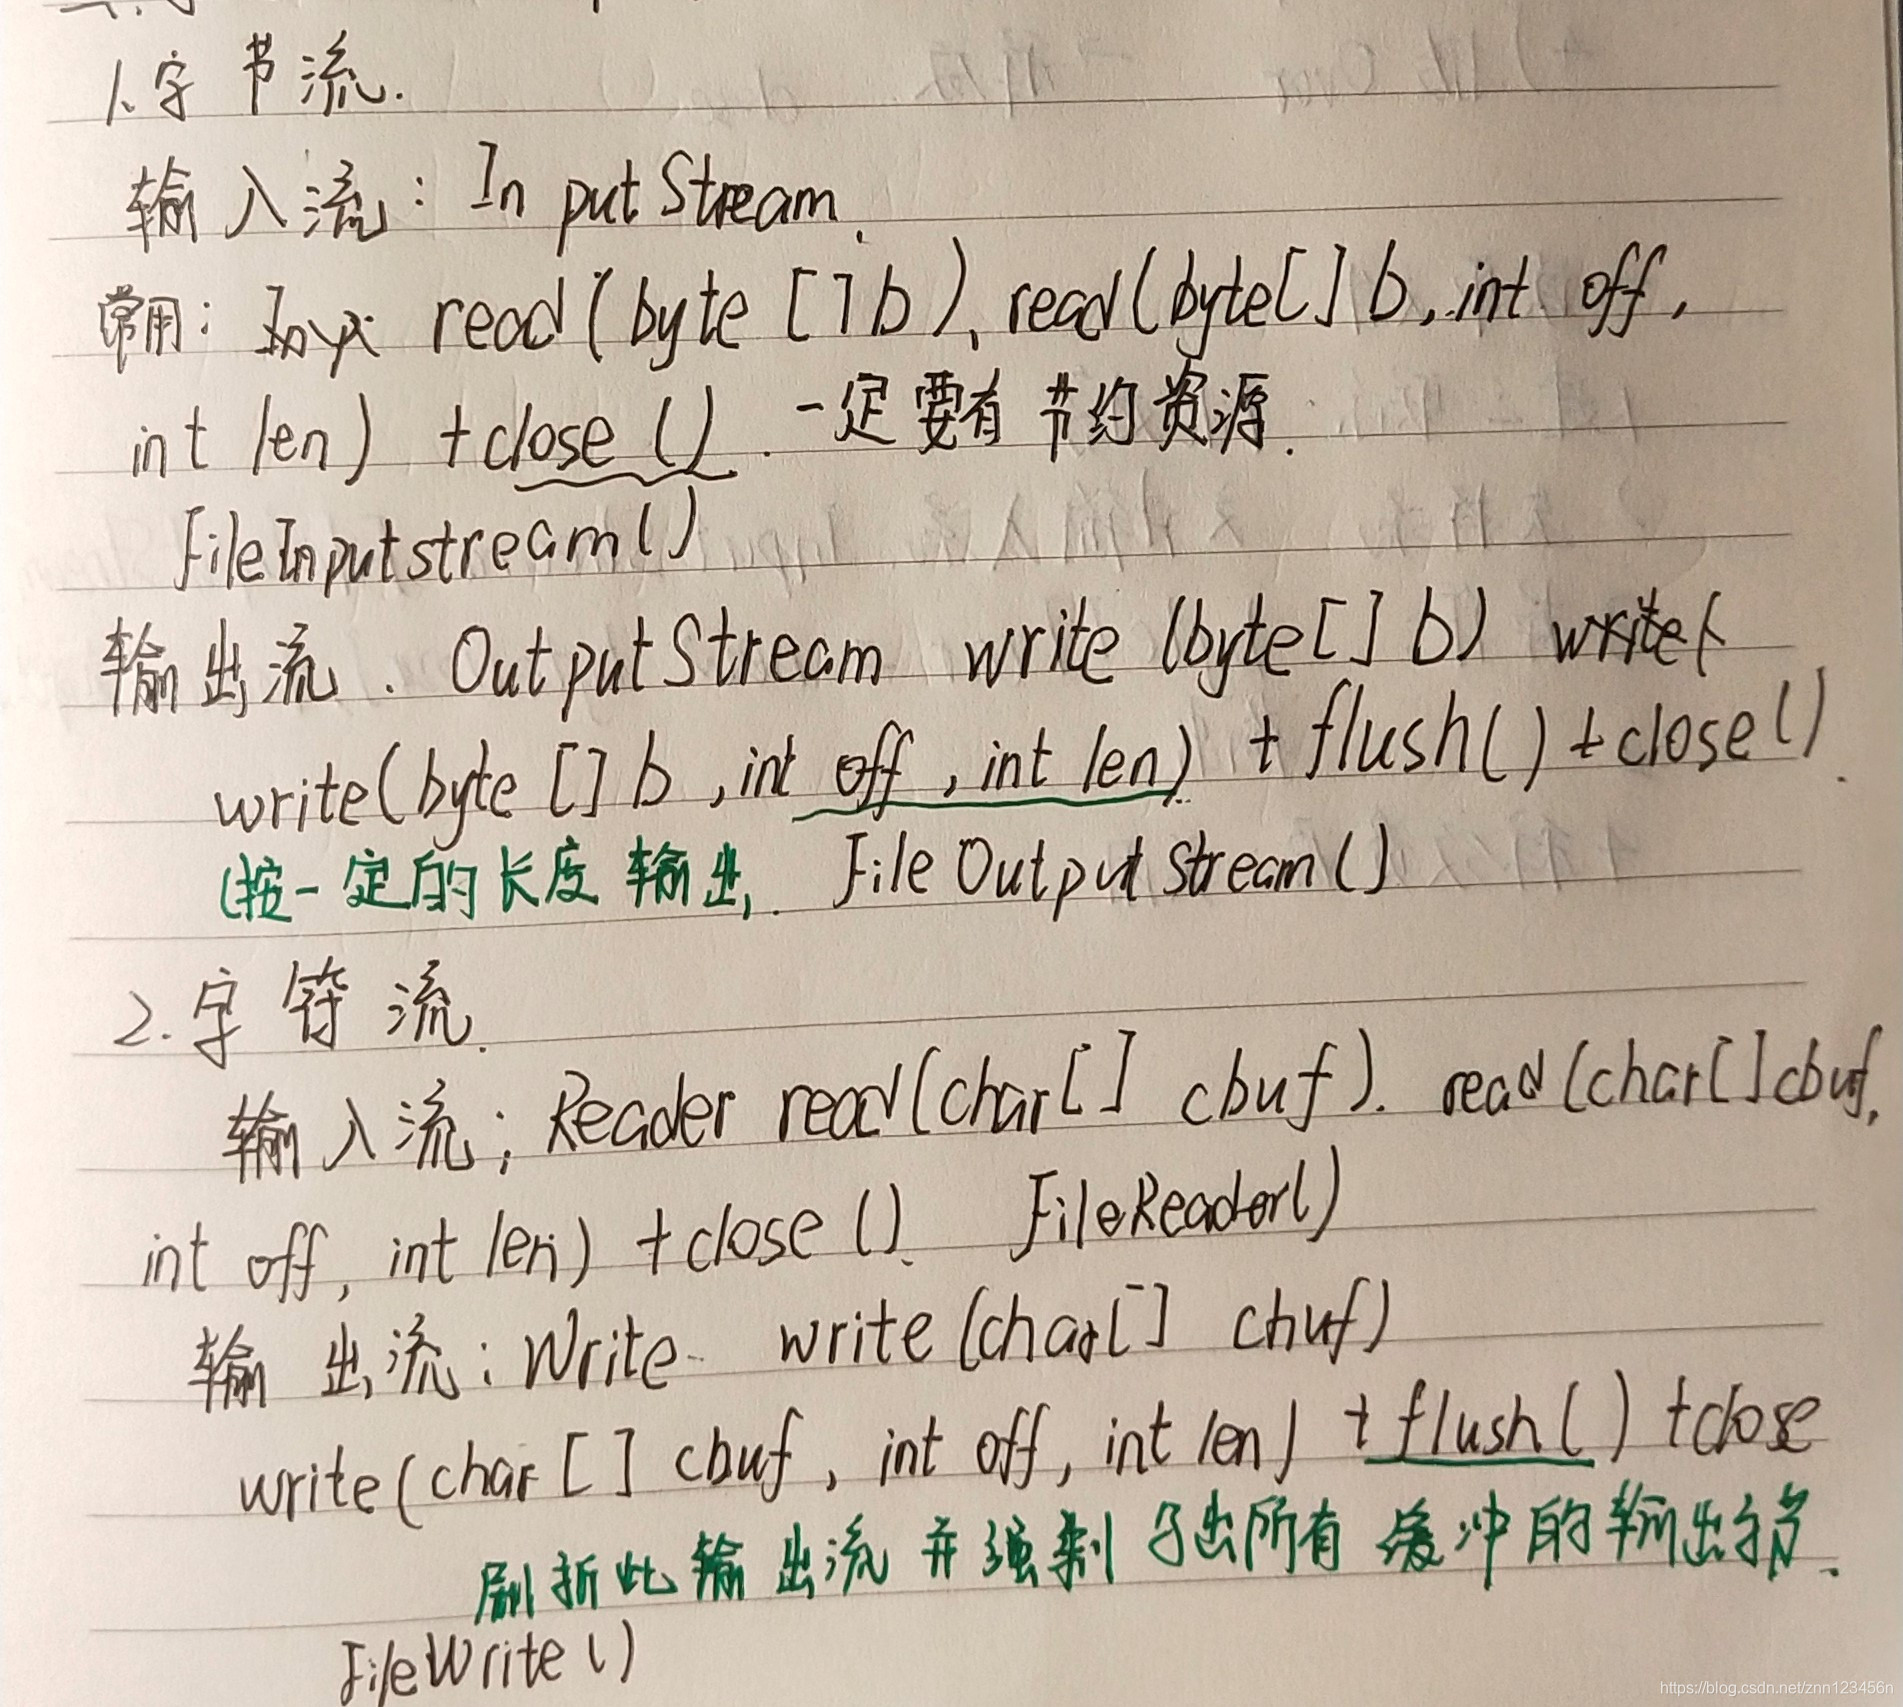 1.字节流.
输入流: InputStream.
常用: read(byte[] b)、read(byte[] b, int off,
int len) +close(). 一定要有 节约资源.
FileInputstream()
输出流. OutputStream write(byte[] b) write(
write(byte[] b, int off, int len) + flush() + close().
(按一定的长度输出. FileOutputStream()
2.字符流.
输入流; Reader read(char[] cbuf). read(char[] cbuf,
int off, int len) +close(). FileReader()
输出流: Write write(char[] cbuf)
write(char[] cbuf, int off, int len) + flush() +close
刷新此输出流并强制 出所有缓冲的输出字节.
FileWrite()
https://blog.csdn.net/znn123456n